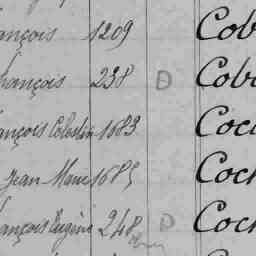 ançois 1209 Cob
rançois 238 D Cob
ançois Celestin 1683 Coc
Jean Marie 1685 Coch
ançois Eugène 248 D Coch